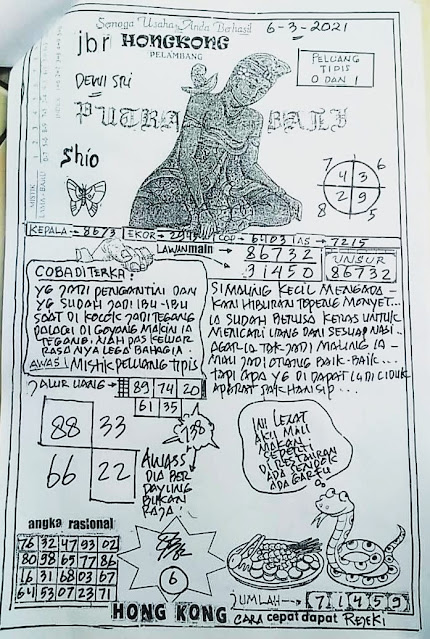 Semoga Usaha Anda Berhasil
6-3-2021
jbr HONGKONG
PELAMBANG
PELUANG
TIPIS
0 DAN 1
DEWI SRI
PUTRA BALI
Shio
7 6
4 3
2 9
8 5
KEPALA → 8673
EKOR → 294
COP → 6403
AS → 7215
LAWAN main → 86732
31450
UNSUR
86732
COBA DITERKA:
YG JADI PENGANTIN DAN
YG SUDAH JADI IBU-IBU
SAAT DI KOCOK JADI TEGANG
PALAGI DI GOYANG MAKIN IA
TEGANG. NAH PAS KELUAR
RASANYA LEGA BAHAGIA.
AWAS! MISTIK PELUANG TIPIS
SI MALING KECIL MENGADA-
KAN HIBURAN TOPENG MONYET...
IA SUDAH BERUSAHA KERAS UNTUK
MENCARI UANG DARI SESUAP NASI.
AGAR IA TAK JADI MALING IA -
MAU JADI ORANG BAIK-BAIK...
TAPI APA YG DI DAPAT IA DI CIDUK
APARAT PAK HANSIP...
JALUR UANG → 89 74 20
61 35
88 33
66 22
138
AWASS
DIA BER
DAYUNG
BUKAN
RAJA.
INI LEZAT
AKU MAU
MAKAN
SEPERTI
DI RESTAURAN
ADA SENDOK
ADA GARFU
angka rasional
76 32 47 93 02
80 98 65 77 86
16 31 68 03 67
64 53 07 23 71
6
JUMLAH → 7 1 4 5 9
HONG KONG CARA cepat dapat REJEKI